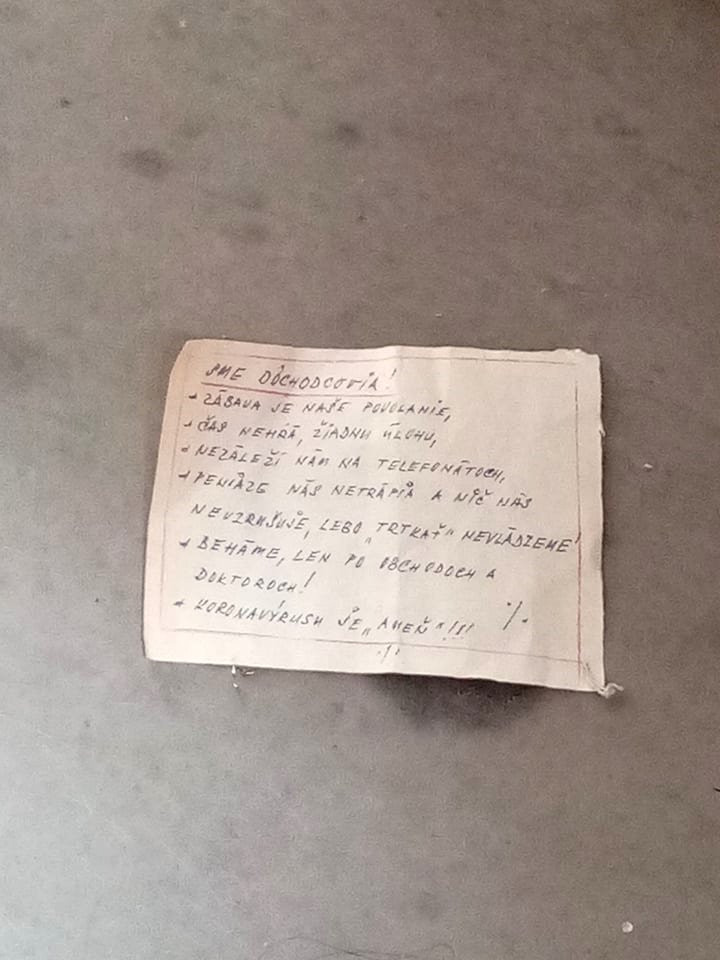 SME DÔCHODCOVIA!
- ZÁBAVA JE NAŠE POVOLANIE,
- ČAS NEHRÁ, ŽIADNU ÚLOHU,
- NEZÁLEŽÍ NÁM NA TELEFONÁTOCH,
- PENIAZE NÁS NETRÁPIA A NIČ NÁS
NEVZRUŠUJE, LEBO „TRTKAŤ“ NEVLÁDZEME!
- BEHÁME, LEN PO OBCHODOCH A
DOKTOROCH!
- KORONAVÝRUSU JE „AMEŇ“!!! ./.
./.